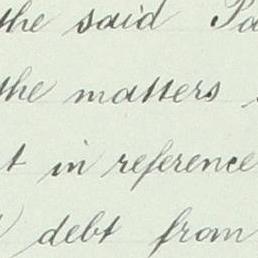 the said Pa
the matters
t in reference
debt from